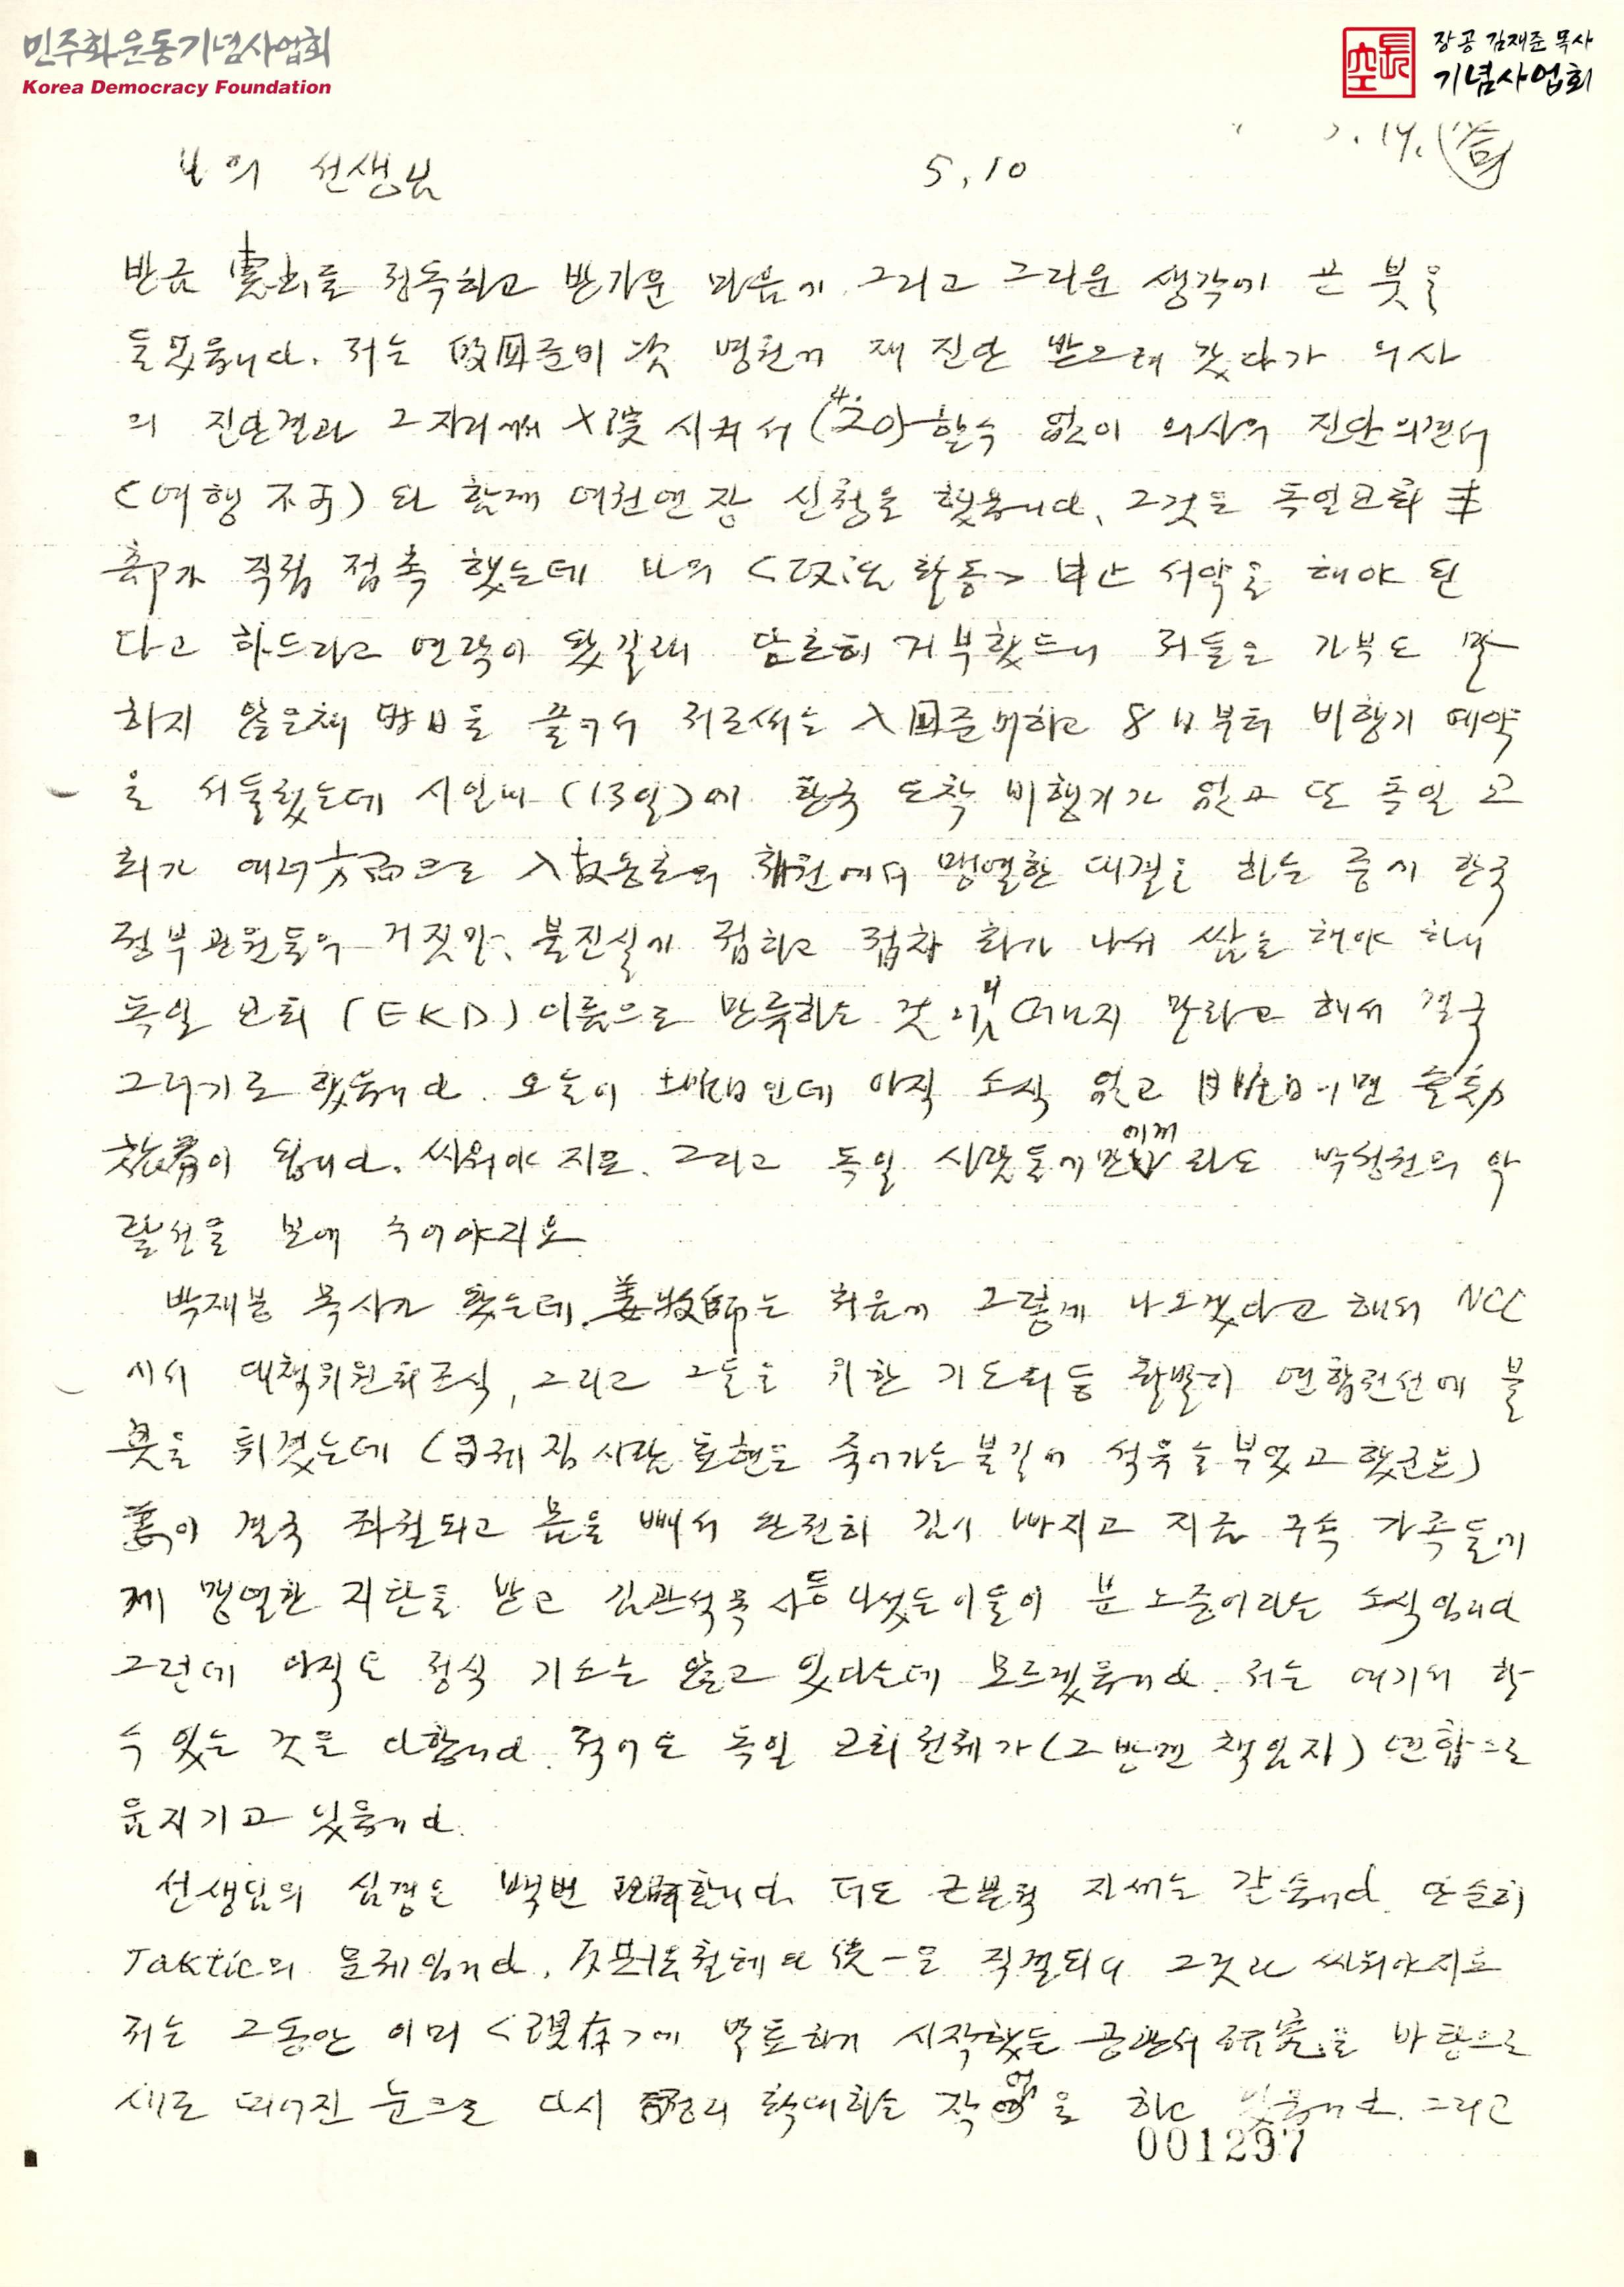 민주화운동기념사업회
Korea Democracy Foundation
長空
장공 김재준 목사
기념사업회
나의 선생님 5.10
방금 惠書를 정독하고 반가운 마음에 그리고 그리운 생각에 곧 붓을
들었읍니다. 저는 故国준비 次 병원에 재 진단 받으려 갔다가 의사
의 진단결과 그 자리에서 入院시켜서 (4.20) 할수 없이 의사의 진단의견서
(여행 不可)와 함께 여권연장 신청을 했읍니다. 그것은 독일교회 本
部가 직접 접촉 했는데 나의 <政治활동> 中止 서약을 해야 된
다고 하드라고 연락이 왔길래 단호히 거부했드니 저들은 가부도 말
하지 않은채 時日을 끌어서 저로써는 入国준비하고 8日부터 비행기 예약
을 서둘렀는데 시일내 (13일)에 한국 도착 비행기가 없고 또 독일 교
회가 여러 方面으로 맹렬한 대결을 하는 중에 한국
정부관원들의 거짓말, 불진실에 접하고 점차 화가 나서 싸움을 해야 하니
독일 교회 (EKD) 이름으로 만류하는 것이니 떠나지 말라고 해서 결국
그러기로 했읍니다. 오늘이 土曜日인데 아직 소식 없고 月曜日이면 無効
旅券이 됩니다. 싸워야지요. 그리고 독일 사람들에게만이라도 박정권의 악
랄성을 보여 주어야지요.
박재봉 목사가 왔는데 姜牧師는 처음에 그렇게 나오겠다고 해서 NCC
에서 대책위원회조직, 그리고 그들을 위한 기도회 등 활발히 연합전선에 불
꽃을 튀겼는데 (국제집사람 표현은 죽어가는 불길에 석유를 부었고 했군요)
姜이 결국 좌절되고 몸을 빼서 완전히 김이 빠지고 지금 구속 가족들에
게 맹렬한 지탄을 받고 김관석 목사 등 나섰든 이들이 분노중이라는 소식입니다
그런데 아직도 정식 기소는 않고 있다는데 모르겠읍니다. 저는 여기서 할
수 있는 것은 다합니다. 적어도 독일 교회전체가 (그 반면 책임자) 연합으로
움직이고 있읍니다.
선생님의 심경은 백번 理解합니다. 저도 근본적 자세는 같습니다. 단순히
Taktic의 문제입니다. 反共法철폐와 統一은 직결되니 그것과 싸워야지요
저는 그동안 이미 <現存>에 발표하기 시작했든 공관서 研究를 바탕으로
새로 떠어진 눈으로 다시 整理 확대하는 작업을 하고 있읍니다. 그리고
001297